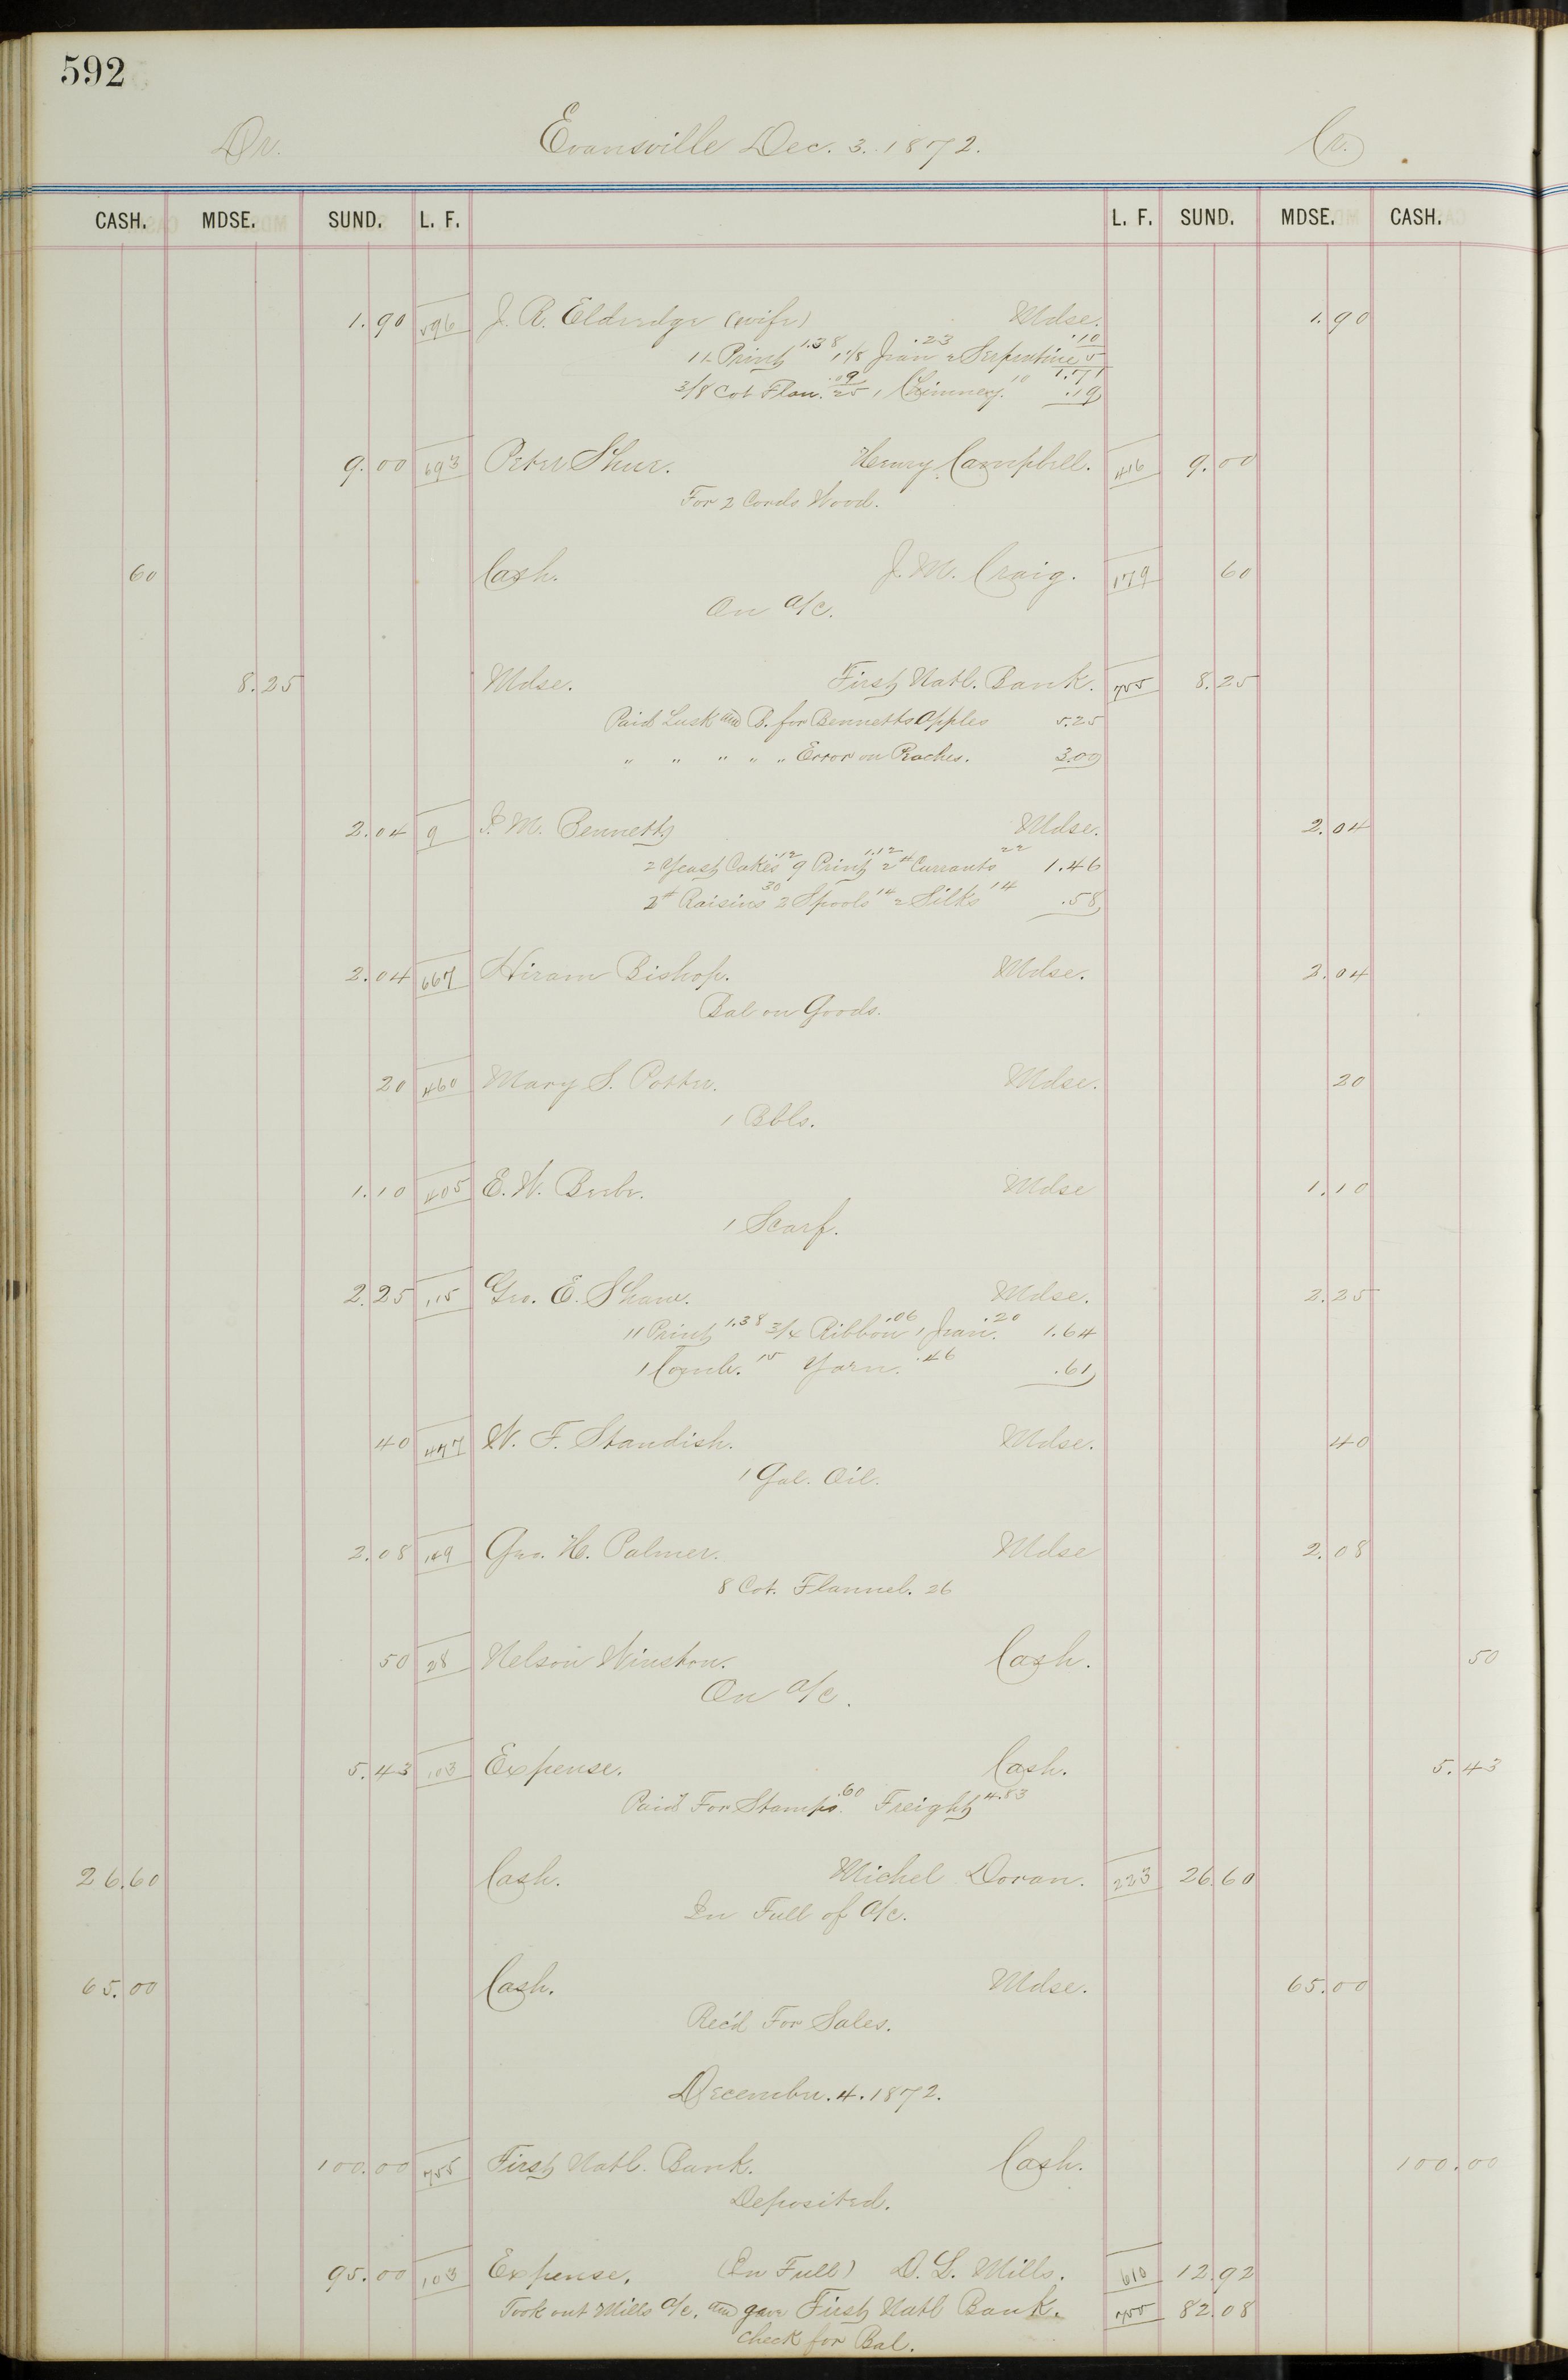 592
Dr. Evansville Dec. 3. 1872. Cr.
CASH. MDSE. SUND. L. F. L. F. SUND. MDSE. CASH.
1.90 596 J. R. Eldredge (wife) Mdse. 1.90
11 Print 1.38 1 1/8 Jean .23 2 Serpentine 5 .10 1.71
3/8 Cot Flan. .09 25 1 Chimney. 10 .19
9.00 693 Peter Shur. Henry Campbell. 416 9.00
For 2 Cords Wood.
60 Cash. J. M. Craig. 179 60
On a/c.
8.25 Mdse. First Natl. Bank. 755 8.25
Paid Lusk and B. for Bennetts Apples 5.25
" " " " " Error on Peaches. 3.00
2.04 9 I. M. Bennett Mdse. 2.04
2 Yeast Cakes .12 9 Print 1.12 2# Currants 22 1.46
2# Raisins 30 2 Spools 14 2 Silks 14 .58
2.04 667 Hiram Bishop. Mdse. 2.04
Bal on Goods.
20 460 Mary S. Potter. Mdse. 20
1 Bbls.
1.10 405 E. W. Beebe. Mdse 1.10
1 Scarf.
2.25 115 Geo. E. Shaw. Mdse. 2.25
11 Print 1.38 3/4 Ribbon .06 1 Jean. .20 1.64
1 Comb. 15 Yarn. .46 .61
40 477 W. F. Standish. Mdse. 40
1 Gal. Oil.
2.08 149 Geo. H. Palmer. Mdse 2.08
8 Cot. Flannel. 26
50 28 Nelson Winston. Cash. 50
On a/c.
5.43 103 Expense. Cash. 5.43
Paid For Stamps. .60 Freight 4.83
26.60 Cash. Michel Doran. 223 26.60
In Full of a/c.
65.00 Cash. Mdse. 65.00
Rec'd For Sales.
December. 4. 1872.
100.00 755 First Natl. Bank. Cash. 100.00
Deposited.
95.00 103 Expense. (In Full) D. L. Mills. 610 12.92
Took out Mills a/c. and gave First Natl Bank. 755 82.08
Check for Bal.